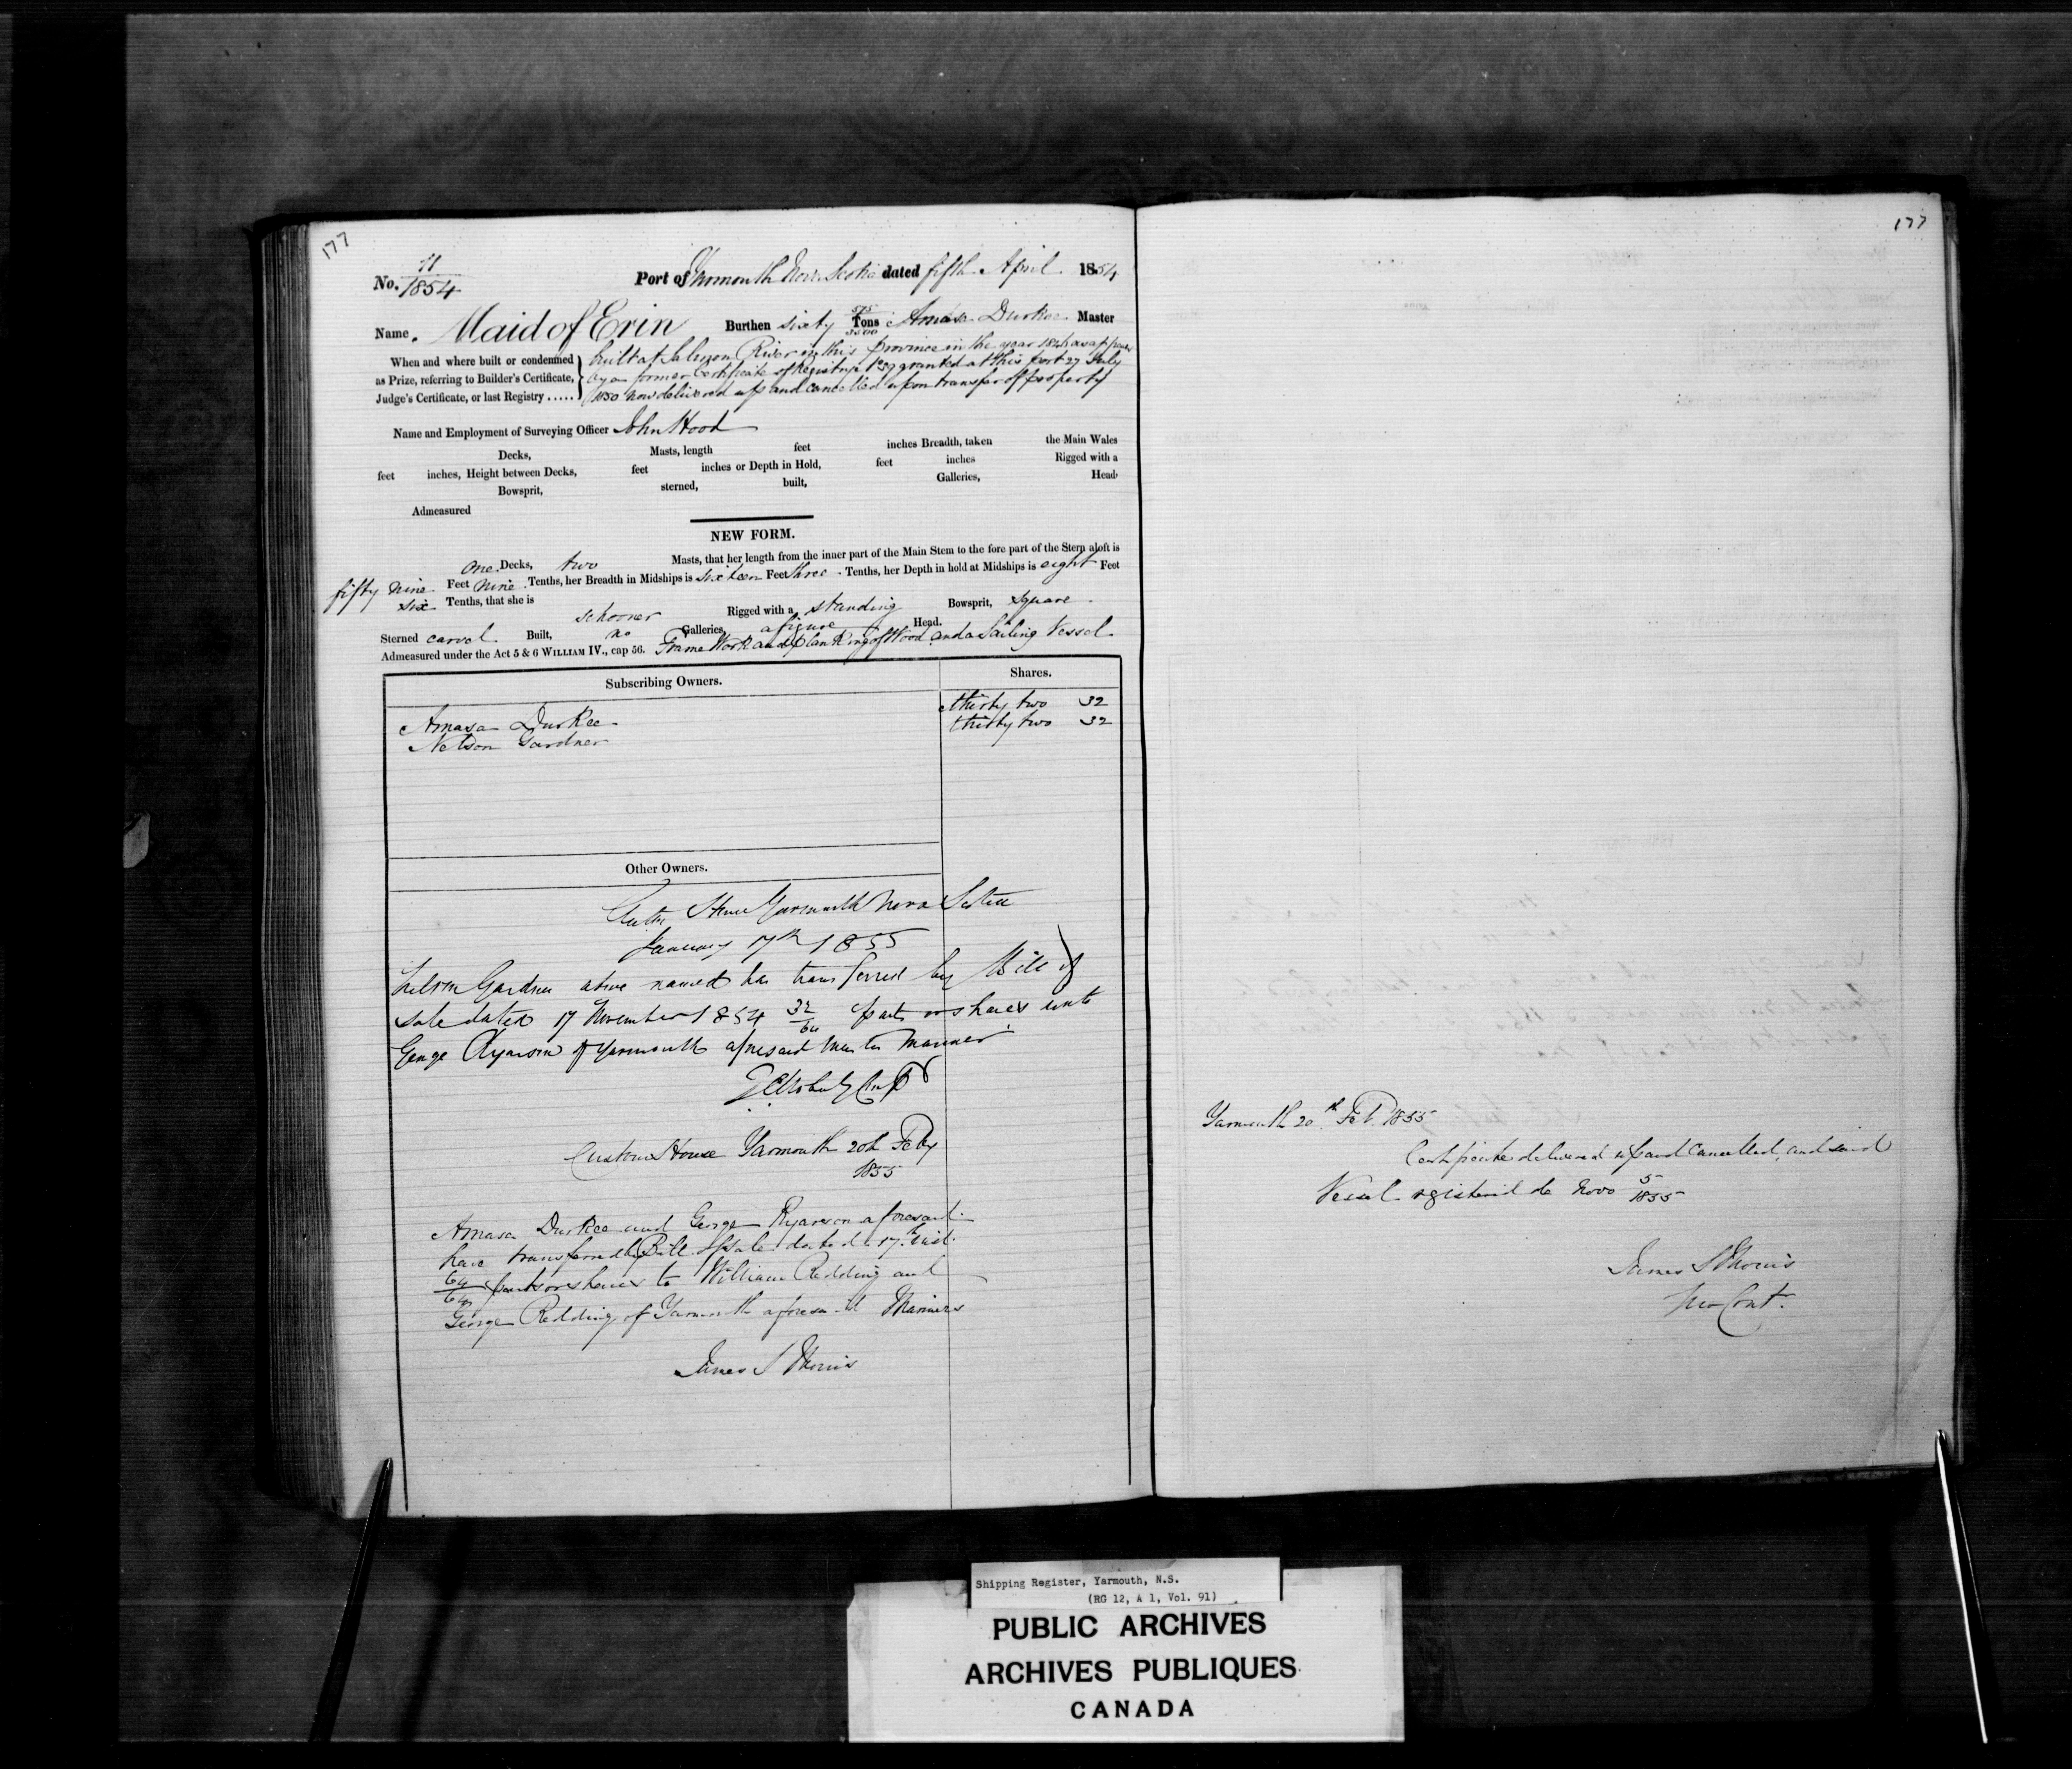 177
No. 11/1854 Port of Yarmouth Nova Scotia dated fifth April 1854
Name. Maid of Erin Burthen sixty 575/3500 Tons Amasa Durkee Master
When and where built or condemned as Prize, referring to Builder's Certificate, Judge's Certificate, or last Registry .....
built at Salmon River in this Province in the year 184 as appears
by a former Certificate of Registry granted at this port 27 July
1850 now delivered up and cancelled upon transfer of property
Name and Employment of Surveying Officer John Hood
Decks, Masts, length feet inches Breadth, taken the Main Wales
feet inches, Height between Decks, feet inches or Depth in Hold, feet inches Rigged with a
Bowsprit, sterned, built, Galleries, Head
Admeasured
NEW FORM.
one Decks, two Masts, that her length from the inner part of the Main Stem to the fore part of the Stern aloft is
fifty nine Feet nine Tenths, her Breadth in Midships is sixteen Feet three Tenths, her Depth in hold at Midships is eight Feet
six Tenths, that she is schooner Rigged with a standing Bowsprit, square
Sterned carvel Built, no Galleries, a figure Head.
Admeasured under the Act 5 & 6 WILLIAM IV., cap 56. Frame Work and planking of Wood and a Sailing Vessel
Subscribing Owners. Shares.
Amasa Durkee thirty two 32
Nelson Gardner thirty two 32
Other Owners.
Custom House Yarmouth Nova Scotia
January 17th 1855
Nelson Gardner above named has transferred by Bill of
Sale dated 17 November 1854 32/64 parts or shares unto
George Ryerson of Yarmouth aforesaid Master Mariner
Custom House Yarmouth 20th Feby
1855
Amasa Durkee and George Ryerson aforesaid
have transferred by Bill of Sale dated 17th inst.
64/64 parts or shares to William Redding and
George Redding of Yarmouth aforesaid Mariners
James S Morris
177
Yarmouth 20th Feb. 1855
Certificate delivered up and Cancelled, and said
Vessel registered de Novo 5/1855
James S Morris
Cont.
Shipping Register, Yarmouth, N.S.
(RG 12, A 1, Vol. 91)
PUBLIC ARCHIVES
ARCHIVES PUBLIQUES
CANADA